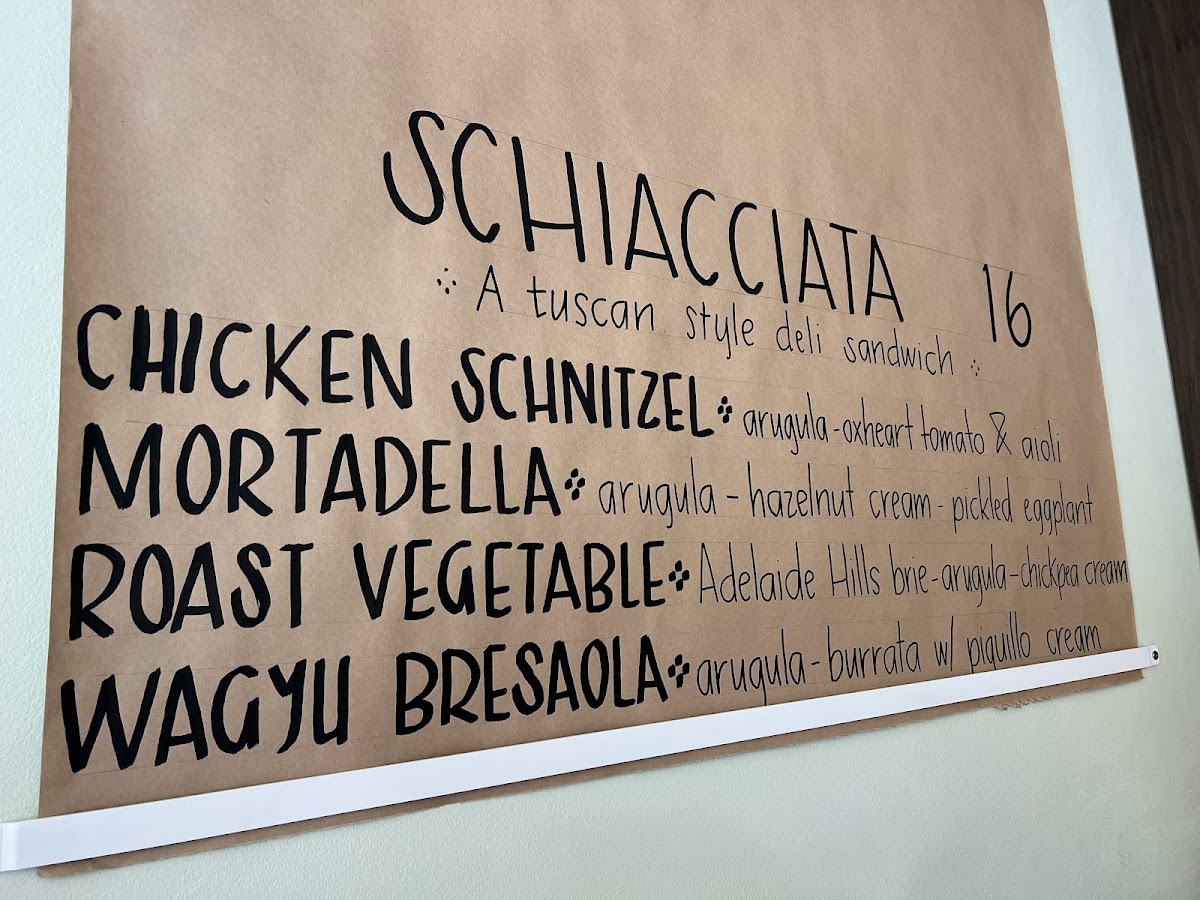 SCHIACCIATA 16
A tuscan style deli sandwich
CHICKEN SCHNITZEL arugula - oxheart tomato & aioli
MORTADELLA arugula - hazelnut cream - pickled eggplant
ROAST VEGETABLE Adelaide Hills brie - arugula - chickpea cream
WAGYU BRESAOLA arugula - burrata w/ piquillo cream